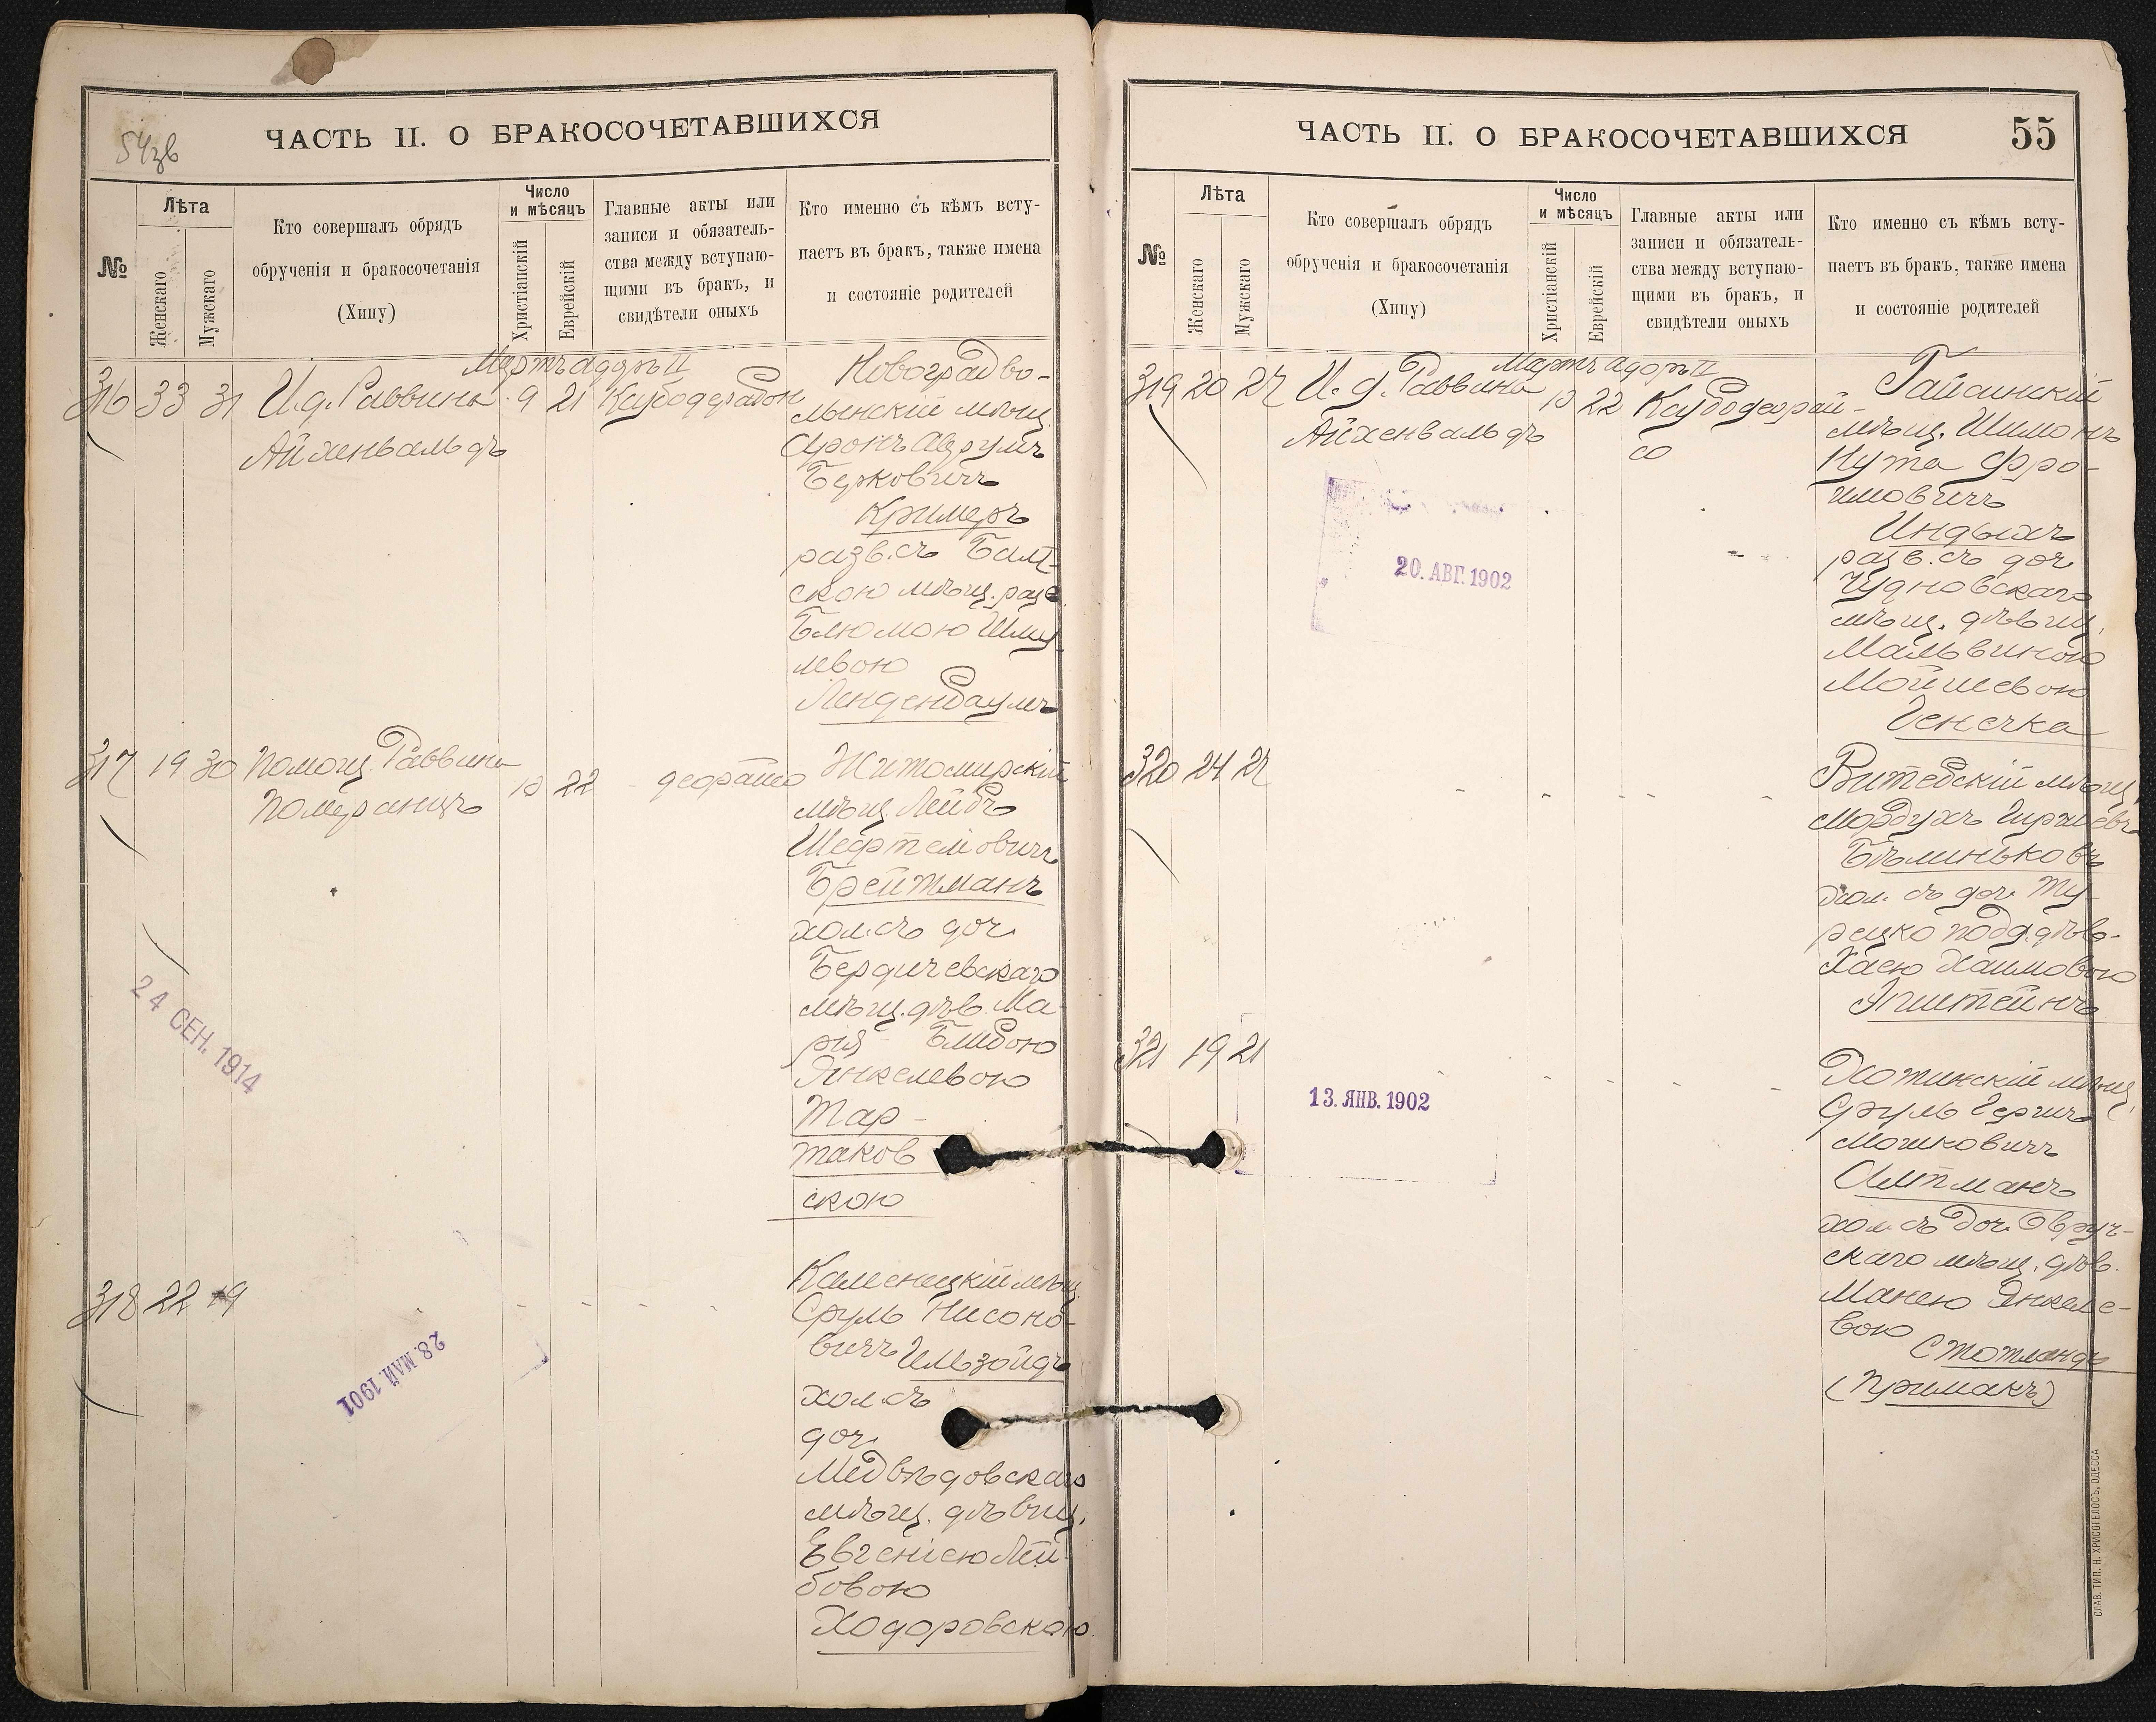 54 зв
ЧАСТЬ II. О БРАКОСОЧЕТАВШИХСЯ
№
Лѣта
Женскаго
Мужскаго
Кто совершалъ обрядъ
обрученія и бракосочетанія
(Хипу)
Число
и мѣсяцъ
Христіанскій
Еврейскій
Главные акты или
записи и обязатель-
ства между вступаю-
щими въ бракъ, и
свидѣтели оныхъ
Кто именно съ кѣмъ всту-
паетъ въ бракъ, также имена
и состояніе родителей
Мартъ адаръ II
316 33 31 И.д. Раввина 9 21
Айхенвальдъ
Новоградво-
лынскій мѣщ.
Аронъ Аврумъ
Берковичъ
Кримеръ
разв. съ Балт-
скою мѣщ. разв.
Блюмою Шму-
левою
Линденбаумъ
317 19 30 Помощ. Раввина 10 22
Померанцъ
Житомирскій
мѣщ. Лейбъ
Шефтеловичъ
Брейтманъ
хол. съ доч.
Бердичевскаго
мѣщ. дѣв. Ма-
рія - Блибою
Янкелевою
Тар-
таков
скою
24 СЕН. 1914
318 22 19
Каменецкій мѣщ.
Сруль Нисоно-
вичъ Ильзойдъ
хол. съ
доч.
Медвѣдовскаго
мѣщ. дѣвиц.
Евгеніею Лей-
бовою
Ходоровскою
28. МАЙ 1901
ЧАСТЬ II. О БРАКОСОЧЕТАВШИХСЯ
55
№
Лѣта
Женскаго
Мужскаго
Кто совершалъ обрядъ
обрученія и бракосочетанія
(Хипу)
Число
и мѣсяцъ
Христіанскій
Еврейскій
Главные акты или
записи и обязатель-
ства между вступаю-
щими въ бракъ, и
свидѣтели оныхъ
Кто именно съ кѣмъ всту-
паетъ въ бракъ, также имена
и состояніе родителей
Мартъ адаръ II
319 20 27 И.д. Раввина 10 22
Айхенвальдъ
Гайсинскій
мѣщ. Шимонъ
Нута Фро-
имовичъ
Индыхъ
разв. съ доч.
Чудновскаго
мѣщ. дѣвиц.
Мальвиною
Мойшевою
Генечка
20. АВГ. 1902
320 24 27
Витебскій мѣщ.
Мордухъ Гиршевъ
Бѣлиньковъ
хол. съ доч. Ту-
рецко подд. дѣв.
Хаею Хаимовою
Эпштейнъ
321 19 21
Хотинскій мѣщ.
Сруль Гершъ
Мошковичъ
Альтманъ
хол. съ доч. Овруч-
скаго мѣщ. дѣв.
Манею Янкеле-
вою
Стотландъ
(Примакъ)
13. ЯНВ. 1902
СЛАВ. ТИП. Н. ХРИСОГЕЛОСЪ, ОДЕССА